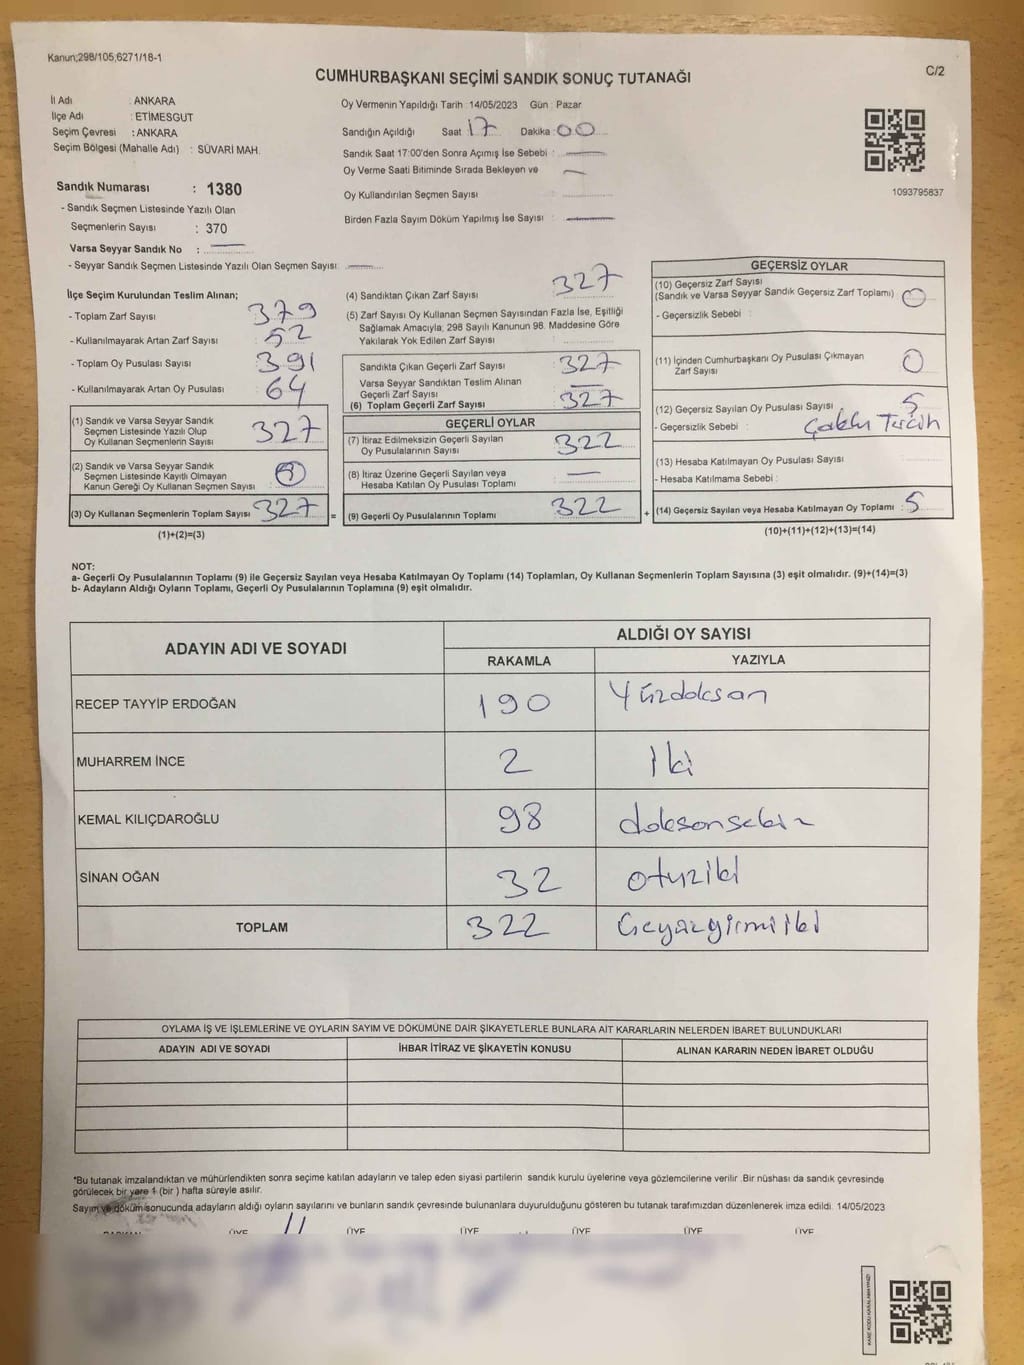 Kanun;298/105;6271/18-1
C/2
CUMHURBAŞKANI SEÇİMİ SANDIK SONUÇ TUTANAĞI
İl Adı : ANKARA
İlçe Adı : ETİMESGUT
Seçim Çevresi : ANKARA
Seçim Bölgesi (Mahalle Adı) : SÜVARİ MAH.
Oy Vermenin Yapıldığı Tarih :14/05/2023 Gün : Pazar
Sandığın Açıldığı Saat : 17 Dakika : 00
Sandık Saat 17:00'den Sonra Açımış İse Sebebi :
Oy Verme Saati Bitiminde Sırada Bekleyen ve
Oy Kullandırılan Seçmen Sayısı
Birden Fazla Sayım Döküm Yapılmış İse Sayısı :
1093795837
Sandık Numarası : 1380
- Sandık Seçmen Listesinde Yazılı Olan
Seçmenlerin Sayısı : 370
Varsa Seyyar Sandık No :
- Seyyar Sandık Seçmen Listesinde Yazılı Olan Seçmen Sayısı:
İlçe Seçim Kurulundan Teslim Alınan;
- Toplam Zarf Sayısı : 379
- Kullanılmayarak Artan Zarf Sayısı : 52
- Toplam Oy Pusulası Sayısı : 391
- Kullanılmayarak Artan Oy Pusulası : 64
(1) Sandık ve Varsa Seyyar Sandık
Seçmen Listesinde Yazılı Olup
Oy Kullanan Seçmenlerin Sayısı : 327
(2) Sandık ve Varsa Seyyar Sandık
Seçmen Listesinde Kayıtlı Olmayan
Kanun Gereği Oy Kullanan Seçmen Sayısı :
(3) Oy Kullanan Seçmenlerin Toplam Sayısı : 327
(1)+(2)=(3)
=
(4) Sandıktan Çıkan Zarf Sayısı : 327
(5) Zarf Sayısı Oy Kullanan Seçmen Sayısından Fazla İse, Eşitliği
Sağlamak Amacıyla; 298 Sayılı Kanunun 98. Maddesine Göre
Yakılarak Yok Edilen Zarf Sayısı :
Sandıkta Çıkan Geçerli Zarf Sayısı : 327
Varsa Seyyar Sandıktan Teslim Alınan
Geçerli Zarf Sayısı
(6) Toplam Geçerli Zarf Sayısı : 327
GEÇERLİ OYLAR
(7) İtiraz Edilmeksizin Geçerli Sayılan
Oy Pusulalarının Sayısı : 322
(8) İtiraz Üzerine Geçerli Sayılan veya
Hesaba Katılan Oy Pusulası Toplamı :
(9) Geçerli Oy Pusulalarının Toplamı : 322
+
GEÇERSİZ OYLAR
(10) Geçersiz Zarf Sayısı
(Sandık ve Varsa Seyyar Sandık Geçersiz Zarf Toplamı) : 0
- Geçersizlik Sebebi :
(11) İçinden Cumhurbaşkanı Oy Pusulası Çıkmayan
Zarf Sayısı : 0
(12) Geçersiz Sayılan Oy Pusulası Sayısı : 5
- Geçersizlik Sebebi : Çoklu Tercih
(13) Hesaba Katılmayan Oy Pusulası Sayısı :
- Hesaba Katılmama Sebebi :
(14) Geçersiz Sayılan veya Hesaba Katılmayan Oy Toplamı : 5
(10)+(11)+(12)+(13)=(14)
NOT:
a- Geçerli Oy Pusulalarının Toplamı (9) ile Geçersiz Sayılan veya Hesaba Katılmayan Oy Toplamı (14) Toplamları, Oy Kullanan Seçmenlerin Toplam Sayısına (3) eşit olmalıdır. (9)+(14)=(3)
b- Adayların Aldığı Oyların Toplamı, Geçerli Oy Pusulalarının Toplamına (9) eşit olmalıdır.
ADAYIN ADI VE SOYADI ALDIĞI OY SAYISI
RAKAMLA YAZIYLA
RECEP TAYYİP ERDOĞAN 190 Yüzdoksan
MUHARREM İNCE 2 İki
KEMAL KILIÇDAROĞLU 98 doksansekiz
SİNAN OĞAN 32 otuziki
TOPLAM 322 üçyüzyirmiiki
OYLAMA İŞ VE İŞLEMLERİNE VE OYLARIN SAYIM VE DÖKÜMÜNE DAİR ŞİKAYETLERLE BUNLARA AİT KARARLARIN NELERDEN İBARET BULUNDUKLARI
ADAYIN ADI VE SOYADI İHBAR İTİRAZ VE ŞİKAYETİN KONUSU ALINAN KARARIN NEDEN İBARET OLDUĞU
*Bu tutanak imzalandıktan ve mühürlendikten sonra seçime katılan adayların ve talep eden siyasi partilerin sandık kurulu üyelerine veya gözlemcilerine verilir. Bir nüshası da sandık çevresinde
görülecek bir yere 1 (bir) hafta süreyle asılır.
Sayım ve döküm sonucunda adayların aldığı oyların sayılarını ve bunların sandık çevresinde bulunanlara duyurulduğunu gösteren bu tutanak tarafımızdan düzenlenerek imza edildi. 14/05/2023
BAŞKAN ÜYE ÜYE ÜYE ÜYE ÜYE ÜYE
KARE KODU KARALAMAYINIZ!